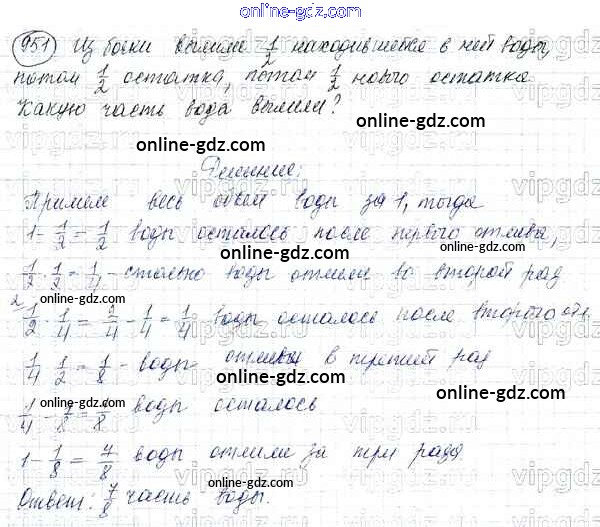 online-gdz.com
951 Из бочки вылили 1/2 находившейся в ней воды,
потом 1/2 остатка, потом 1/2 нового остатка
Какую часть вода вылили?
online-gdz.com
Решение:
Примем весь объем воды за 1, тогда
online-gdz.com
1 - 1/2 = 1/2 воды осталось после первого отлива,
online-gdz.com
1/2 · 1/2 = 1/4 - воды отлили во второй раз
online-gdz.com
1/2 - 1/4 = 2/4 - 1/4 = 1/4 воды осталось после второго
online-gdz.com
1/4 · 1/2 = 1/8 - воды в третий раз
online-gdz.com
1/4 - 1/8 = 1/8 воды осталось
online-gdz.com
1 - 1/8 = 7/8 воды отлили за три раза
online-gdz.com
Ответ: 7/8 часть воды.
online-gdz.com